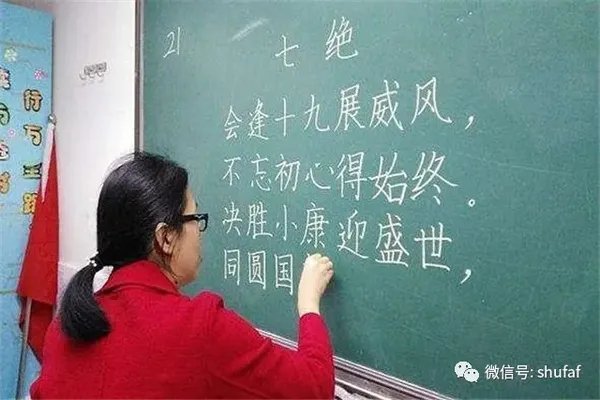 21
七绝
会逢十九展威风，
不忘初心得始终。
决胜小康迎盛世，
同圆国
行万
微信号: shufaf